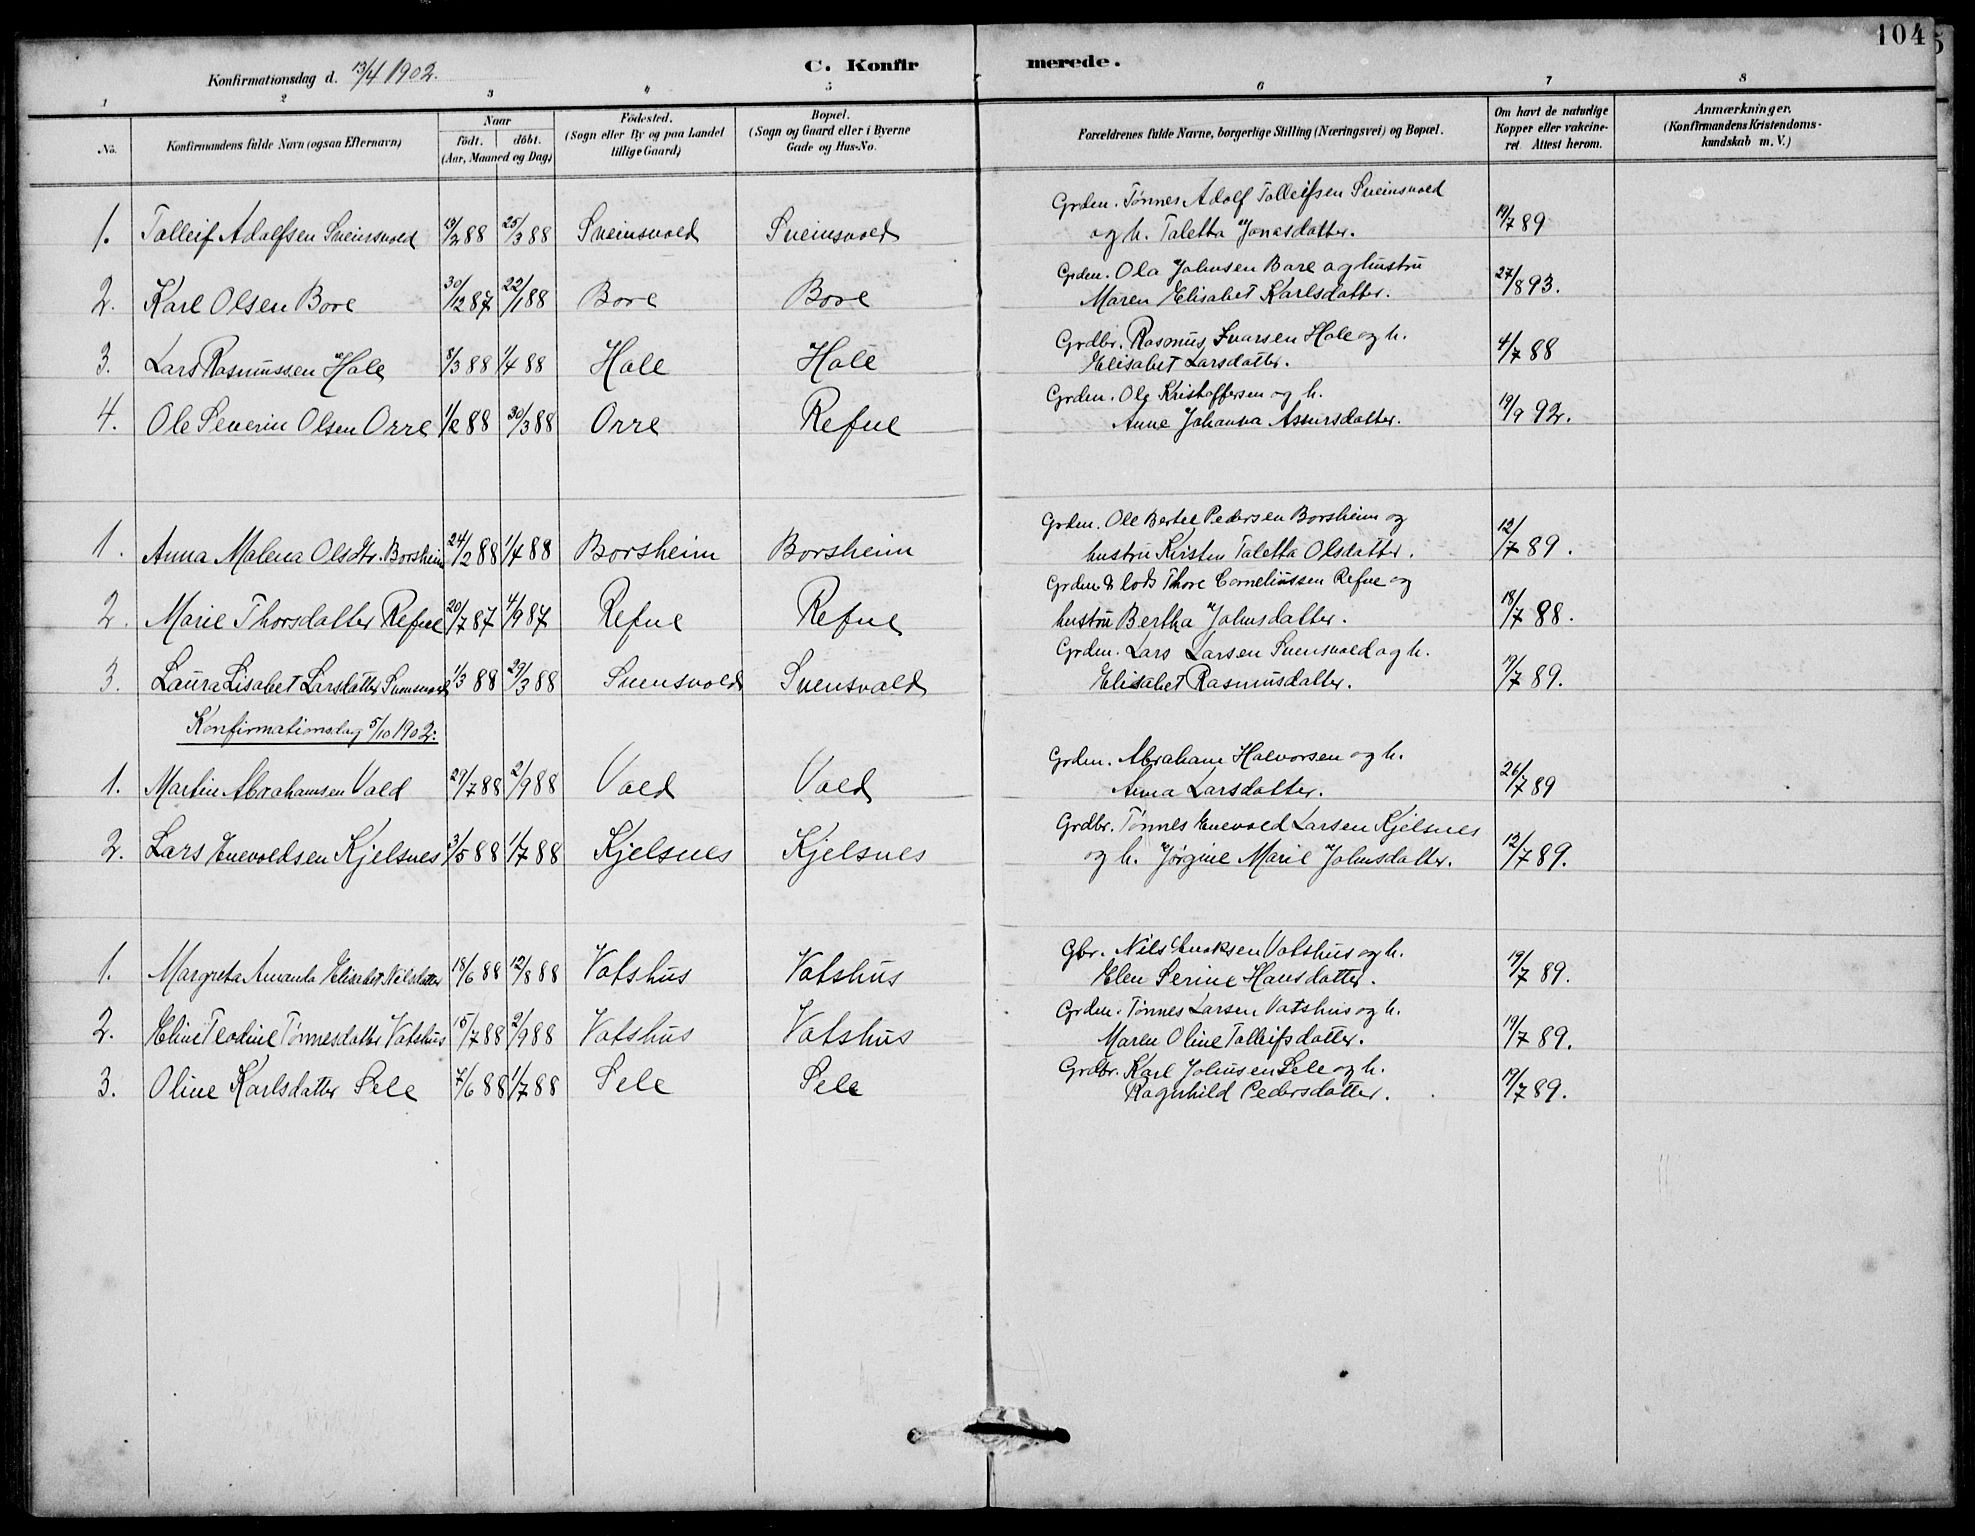 104
Konfirmationsdag d. 13/4 1902.
C. Konfirmerede.
1 2 3 4 5 6 7 8
No.
Konfirmandens fulde Navn (ogsaa Efternavn)
Naar
födt. döbt.
(Aar, Maaned og Dag)
Födested.
(Sogn eller By og paa Landet
tillige Gaard)
Bopæl.
(Sogn og Gaard eller i Byerne
Gade og Hus-No.
Forældrenes fulde Navne, borgerlige Stilling (Næringsvei) og Bopæl.
Om havt de naturlige
Kopper eller vakcine-
ret. Attest herom.
Anmærkninger.
(Konfirmandens Kristendoms-
kundskab m. V.)
Grden. Tönnes Adolf Tolleifsen Sveinsvold
1. Tolleif Adolfsen Sveinsvold 88 25/3 88 Sveinsvold Sveinsvold og h. Taletta Jonasdatter. 19/7 89
Grden. Ola Johnsen Bore og hustru
2. Karl Olsen Bore 30/12 87 22/1 88 Bore Bore Maren Elisabet Karlsdatter. 27/8 93.
Grdbr. Rasmus Ivarsen Hole og h.
3. Lars Rasmussen Hole 3/3 88 1/4 88 Hole Hole Elisabet Larsdatter. 4/7 88
Grden. Ole Kristoffersen og h.
4. Ole Severin Olsen Orre 1/2 88 30/3 88 Orre Refue Anne Johanna Assursdatter. 19/9 92.
Grden. Ole Bertel Pedersen Borsheim og
1. Anna Malena Olsdtr. Borsheim 24/2 88 1/4 88 Borsheim Borsheim hustru Kirsten Taletta Olsdatter. 12/7 89.
Grden. & lods Thore Corneliussen Refue og
2. Marie Thorsdatter Refue 20/7 87 4/9 87 Refue Refue hustru Bertha Johnsdatter. 18/7 88.
Grden. Lars Larsen Svensvold og h.
3. Laura Lisabet Larsdatter Svensvold 1/3 88 29/3 88 Svensvold Svensvold Elisabet Rasmusdatter. 19/7 89.
Konfirmationsdag 5/10 1902.
Grden. Abraham Halvorsen og h.
1. Martin Abrahamsen Vold 29/7 88 2/9 88 Vold Vold Anna Larsdatter. 26/7 89
Grdbr. Tönnes Enevold Larsen Kjelsnes
2. Lars Enevoldsen Kjelsnes 3/5 88 1/7 88 Kjelsnes Kjelsnes og h. Jörgine Marie Johnsdatter. 12/7 89.
Gbr. Nils Enoksen Vatshus og h.
1. Margreta Amanda Elisabet Nilsdatter 18/6 88 12/8 88 Vatshus Vatshus Elen Serine Hansdatter. 19/7 89.
Grden. Tönnes Larsen Vatshus og h.
2. Eline Teodine Tönnesdatter Vatshus 15/7 88 2/9 88 Vatshus Vatshus Maren Oline Tolleifsdatter. 19/7 89.
Grdbr. Karl Johnsen Sele og h.
3. Oline Karlsdatter Sele 7/6 88 1/7 88 Sele Sele Ragnhild Pedersdatter. 19/7 89.